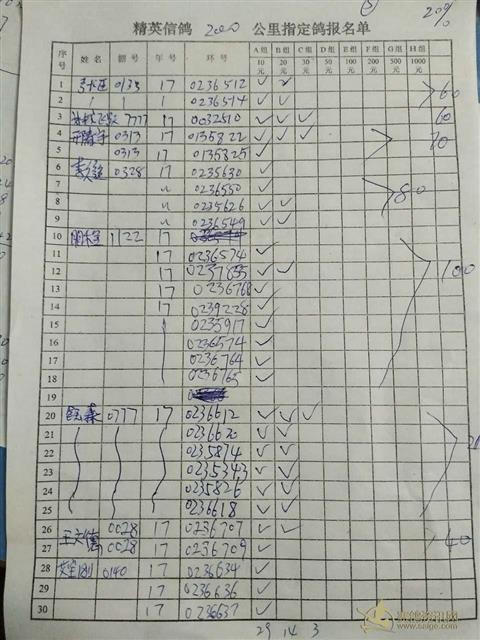 ⑤
精英信鸽 2000 公里指定鸽报名单 20%
序号 姓名 棚号 年号 环号 A组10元 B组20元 C组30元 D组50元 E组100元 F组200元 G组500元 H组1000元
1 0135 17 0236512 ✓ ✓
2 0236514 ✓ ✓ 60
3 7777 17 0032510 ✓ ✓ ✓ 60
4 0313 17 0135822 ✓ ✓ ✓ 70
5 0313 17 0135825 ✓
6 0328 17 0235630 ✓
7 0236550 ✓ 80
8 0235626 ✓ ✓
9 0236549 ✓ ✓
10 1122 17
11 17 0236574 ✓
12 17 0237855 ✓ ✓ 100
13 17 0236768 ✓
14 17 0239228 ✓
15 0235917 ✓
16 0236574 ✓
17 0236764 ✓
18 0236765 ✓
19
20 0777 17 0236612 ✓ ✓ ✓
21 0236620 ✓ ✓
22 0235874 ✓ ✓
23 0235343 ✓ ✓
24 0235826 ✓ ✓
25 0236618 ✓ ✓
26 0028 17 0236707 ✓ ✓
27 0028 17 0236709 ✓ 40
28 0140 17 0236634 ✓
29 17 0236636 ✓
30 17 0236637 ✓
29 14 3
赛鸽资讯网
www.saige.com